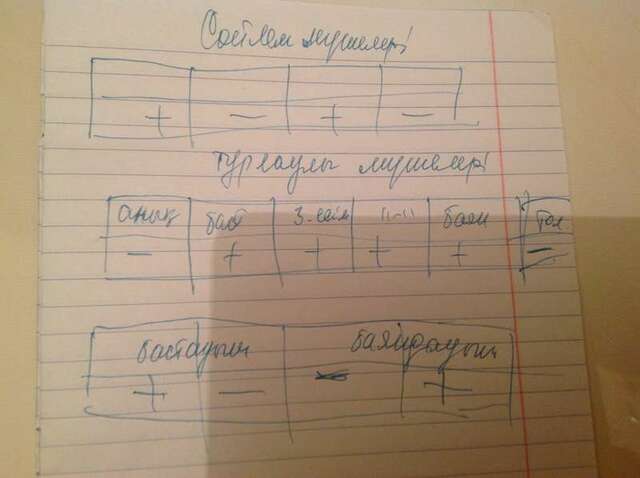 Сөйлем мүшелері
+ — + —
тұрлаулы мүшелері
анық баст 3-сөйл —//— баян тол
— + + + + —
бастауыш баяндауыш
+ — — +